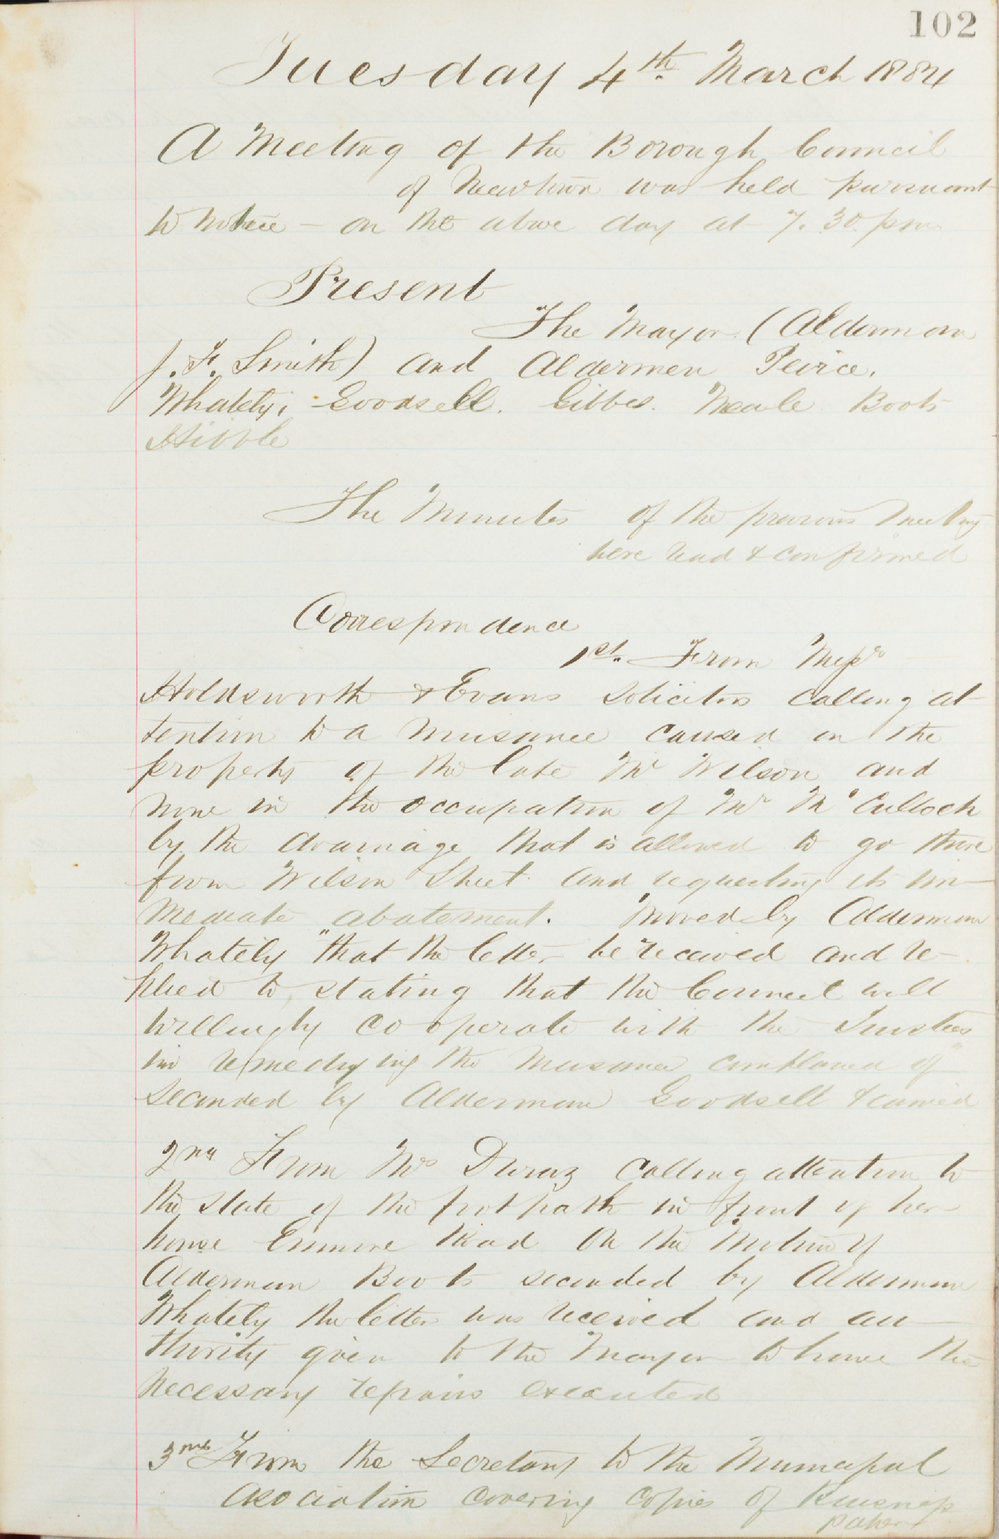 102
Tuesday 4th. March 1884
A Meeting of the Borough Council
of Newtown was held pursuant
to notice - on the above day at 7.30 pm
Present
The Mayor (Alderman
J. F. Smith) and Aldermen Peirce.
Whately, Goodsell. Gibbes. Neale Boots
Hibble
The Minutes of the previous meeting
were read & confirmed
Correspondence
1st. From Messrs
Holdsworth & Evans Solicitors calling at
tention to a nuisance caused on the
property of the late Mr Wilson and
now in the occupation of Mr McCulloch
by the drainage that is allowed to go there
from Wilson Street and requesting its im-
mediate abatement. Moved by Alderman
Whately "that the letter be received and re-
plied to, stating that the Council will
willingly cooperate with the Trustees
in remedying the nuisance complained of"
seconded by Alderman Goodsell & carried
2nd From Mrs calling attention to
the state of the footpath in front of her
house Enmore Road On the Motion of
Alderman Boots seconded by Alderman
Whately the letter was received and au-
thority given to the Mayor to have the
necessary repairs executed
3rd From the Secretary to the Municipal
Asociation covering copies of
paper